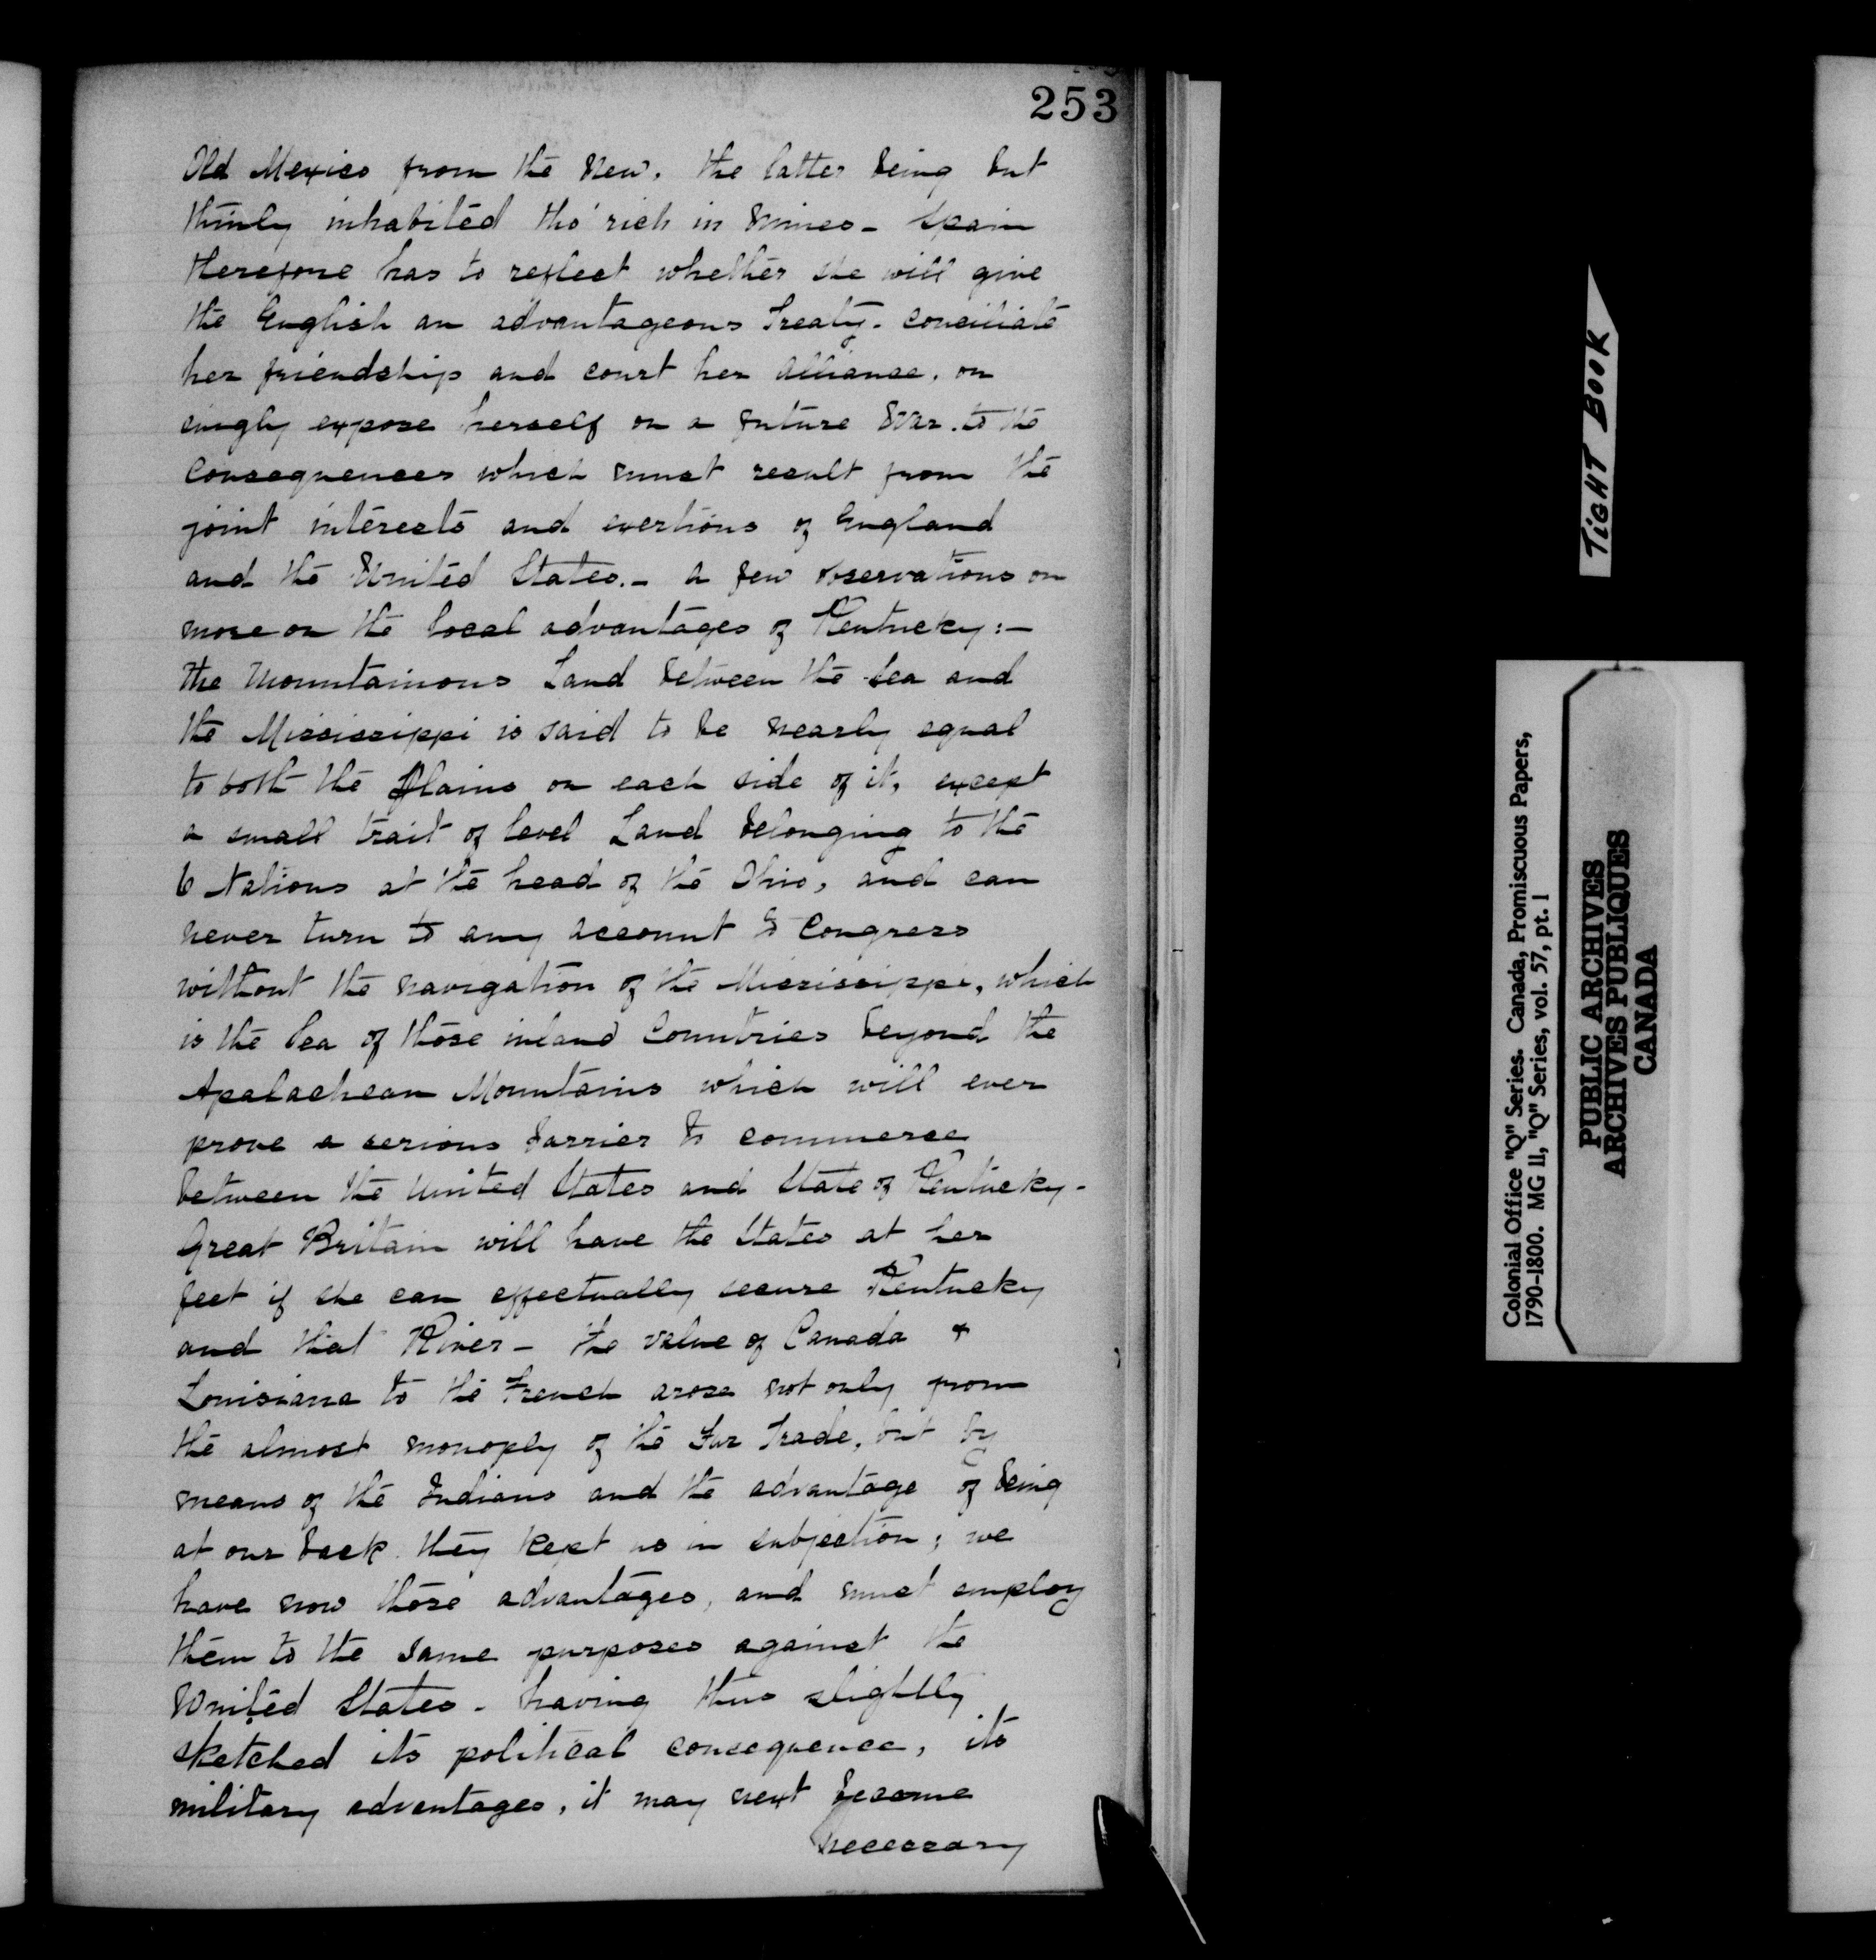 253
Old Mexico from the New, the latter being but
thinly inhabited tho' rich in Mines - Spain
therefore has to reflect whether she will give
the English an advantageous Treaty - conciliate
her friendship and court her Alliance, or
singly expose herself on a future War. to the
Consequences which must result from the
joint interests and exertions of England
and the United States. - A few observations on
more on the local advantages of Kentucky : -
The Mountainous Land between the Sea and
the Mississippi is said to be nearly equal
to both the Plains on each side of it, except
a small trait of level Land belonging to the
6 Nations at the head of the Ohio, and can
never turn to any account to Congress
without the navigation of the Mississippi, which
is the Sea of those inland Countries beyond the
Apalachean Mountains which will ever
prove a serious barrier to commerce
between the United States and State of Kentucky -
Great Britain will have the States at her
feet if she can effectually secure Kentucky
and that River - the value of Canada &
Louisiana to the French arose not only from
the almost monoply of the Fur Trade, but by
means of the Indians and the advantage of being
at our back they kept us in subjection ; we
have now those advantages, and must employ
them to the same purposes against the
United States - having thus slightly
sketched its political consequence, its
military advantages, it may next become
necessary
TIGHT BOOK
Colonial Office "Q" Series. Canada, Promiscuous Papers,
1790-1800. MG 11, "Q" Series, vol. 57, pt. 1
PUBLIC ARCHIVES
ARCHIVES PUBLIQUES
CANADA